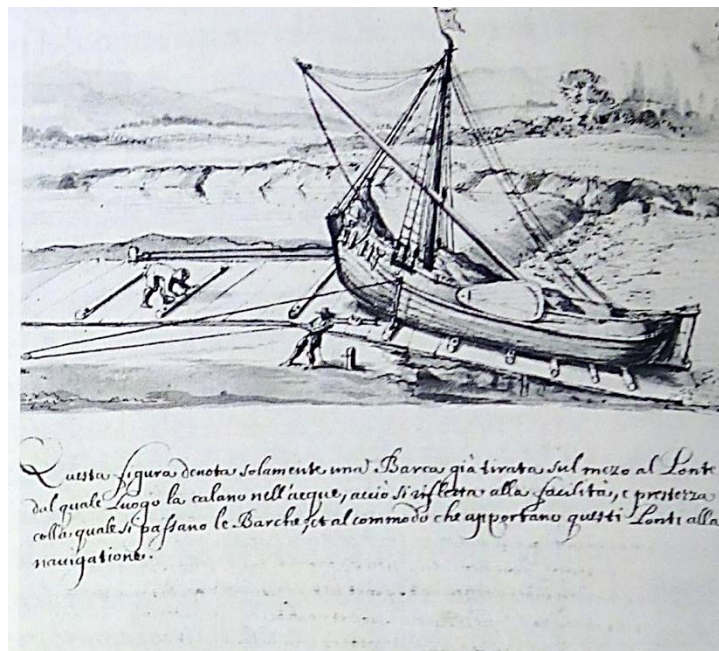 Questa figura denota solamente una Barca già tirata sul mezo al Ponte
dal quale Luogo la calano nell'acque, acciò si rifletta alla facilità, e prestezza
colla quale si passano le Barche, et al commodo che apportano questi Ponti alla
navigatione.